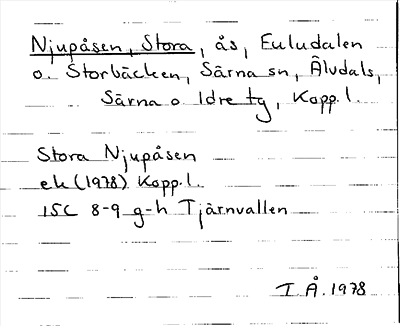 Njupåsen, Stora, ås, Euludalen
o. Storbäcken, Särna sn, Älvdals,
Särna o Idre tg, Kopp.l.
Stora Njupåsen
ek (1978) Kopp.l.
15C 8-9 g-h Tjärnvallen
I Å. 1978